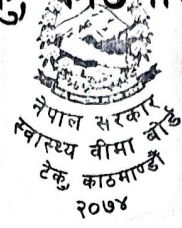 नेपाल सरकार
स्वास्थ्य वीमा बोर्ड
टेकु, काठमाण्डौं
२०७४